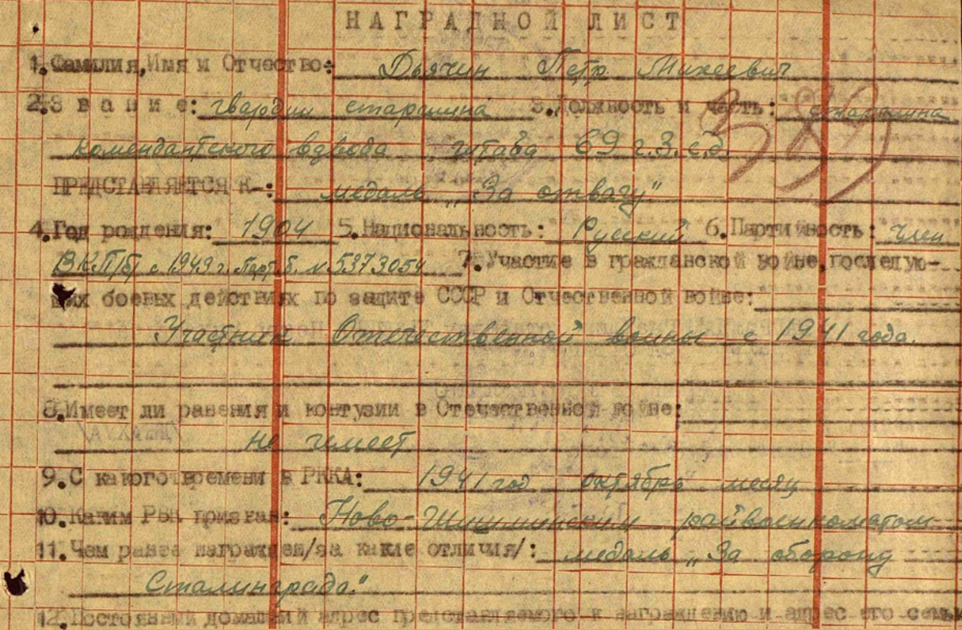 НАГРАДНОЙ ЛИСТ
1. Фамилия, Имя и Отчество: Дьячин Петр Михеевич
2. Звание: гвардии старшина 3. Должность и часть: старшина
комендантского взвода штаба 69 г.з.с.д.
ПРЕДСТАВЛЯЕТСЯ К-: медаль „За отвагу"
4. Год рождения: 1904 5. Национальность: Руский 6. Партийность: член
ВКП/б/ с 1943 г. Парт.б. № 5373054 7. Участие в гражданской войне, последую-
щих боевых действиях по защите СССР и Отечественной войне:
Участник Отечественной войны с 1941 года.
8. Имеет ли ранения и контузии в Отечественной войне:
не имеет
9. С какого времени в РККА: 1941 год октябрь месяц
10. Каким РВК призван: Ново-Шишминским райвоенкоматом
11. Чем ранее награжден/за какие отличия/: медаль „За оборону
Сталинграда".
12. Постоянный домашний адрес представляемого к награждению и адрес его семьи